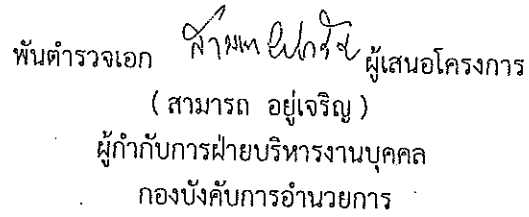 พันตำรวจเอก ผู้เสนอโครงการ
( สามารถ อยู่เจริญ )
ผู้กำกับการฝ่ายบริหารงานบุคคล
กองบังคับการอำนวยการ